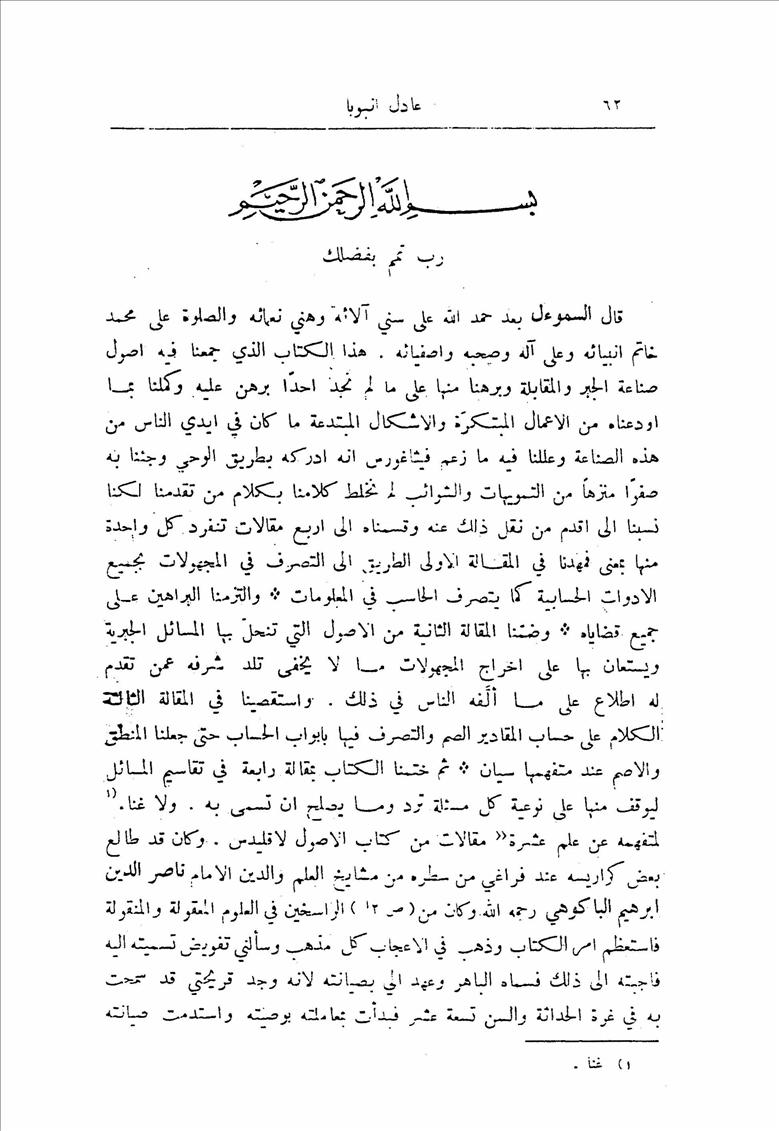 ٦٢ عادل انبوبا
بسم الله الرحمن الرحيم
رب تمم بفضلك
قال السموءل بعد حمد الله على سني آلائه وهني نعمائه والصلوة على محمد
خاتم انبيائه وعلى آله وصحبه واصفيائه . هذا الكتاب الذي جمعنا فيه اصول
صناعة الجبر والمقابلة وبرهنا منها على ما لم نجد احدًا برهن عليه وكملنا بما
اودعناه من الاعمال المبتكرة والاشكال المبتدعة ما كان في ايدي الناس من
هذه الصناعة وعللنا فيه ما زعم فيثاغورس انه ادركه بطريق الوحي وجئنا به
صفرًا منزهاً من التمويهات والشوائب لم نخلط كلامنا بكلام من تقدمنا لكنا
نسبنا الى اقدم من نقل ذلك عنه وقسمناه الى اربع مقالات تنفرد كل واحدة
منها بمعنى فمهدنا في المقالة الاولى الطريق الى التصرف في المجهولات بجميع
الادوات الحسابية كما يتصرف الحاسب في المعلومات * والتزمنا البراهين على
جميع قضاياه * وضمّنا المقالة الثانية من الاصول التي تنحلّ بها المسائل الجبرية
ويستعان بها على اخراج المجهولات ما لا يخفى تلد شرفه عمن تقدم
له اطلاع على ما ألّفه الناس في ذلك . واستقصينا في المقالة الثالثة
الكلام على حساب المقادير الصم والتصرف فيها بابواب الحساب حتى جعلنا المنطق
والاصم عند متفهمها سيان * ثم ختمنا الكتاب بمقالة رابعة في تقاسيم المسائل
ليوقف منها على نوعية كل مسئلة ترد وما يصلح ان تسمى به . ولا غنا.(١
لمتفهمه عن علم عشرة« مقالات من كتاب الاصول لاقليدس . وكان قد طالع
بعض كراريسه عند فراغي من سطره من مشايخ العلم والدين الامام ناصر الدين
ابرهيم الباكوهي رحمه الله وكان من (ص ١٢) الراسخين في العلوم المعقولة والمنقولة
فاستعظم امر الكتاب وذهب في الاعجاب كل مذهب وسألني تفويض تسميته اليه
فاجبته الى ذلك فسماه الباهر وعهد الي بصيانته لانه وجد قريحتي قد سمحت
به في غرة الحداثة والسن تسعة عشر فبدأت بمعاملته بوصيته واستدمت صيانته
١) غنا .